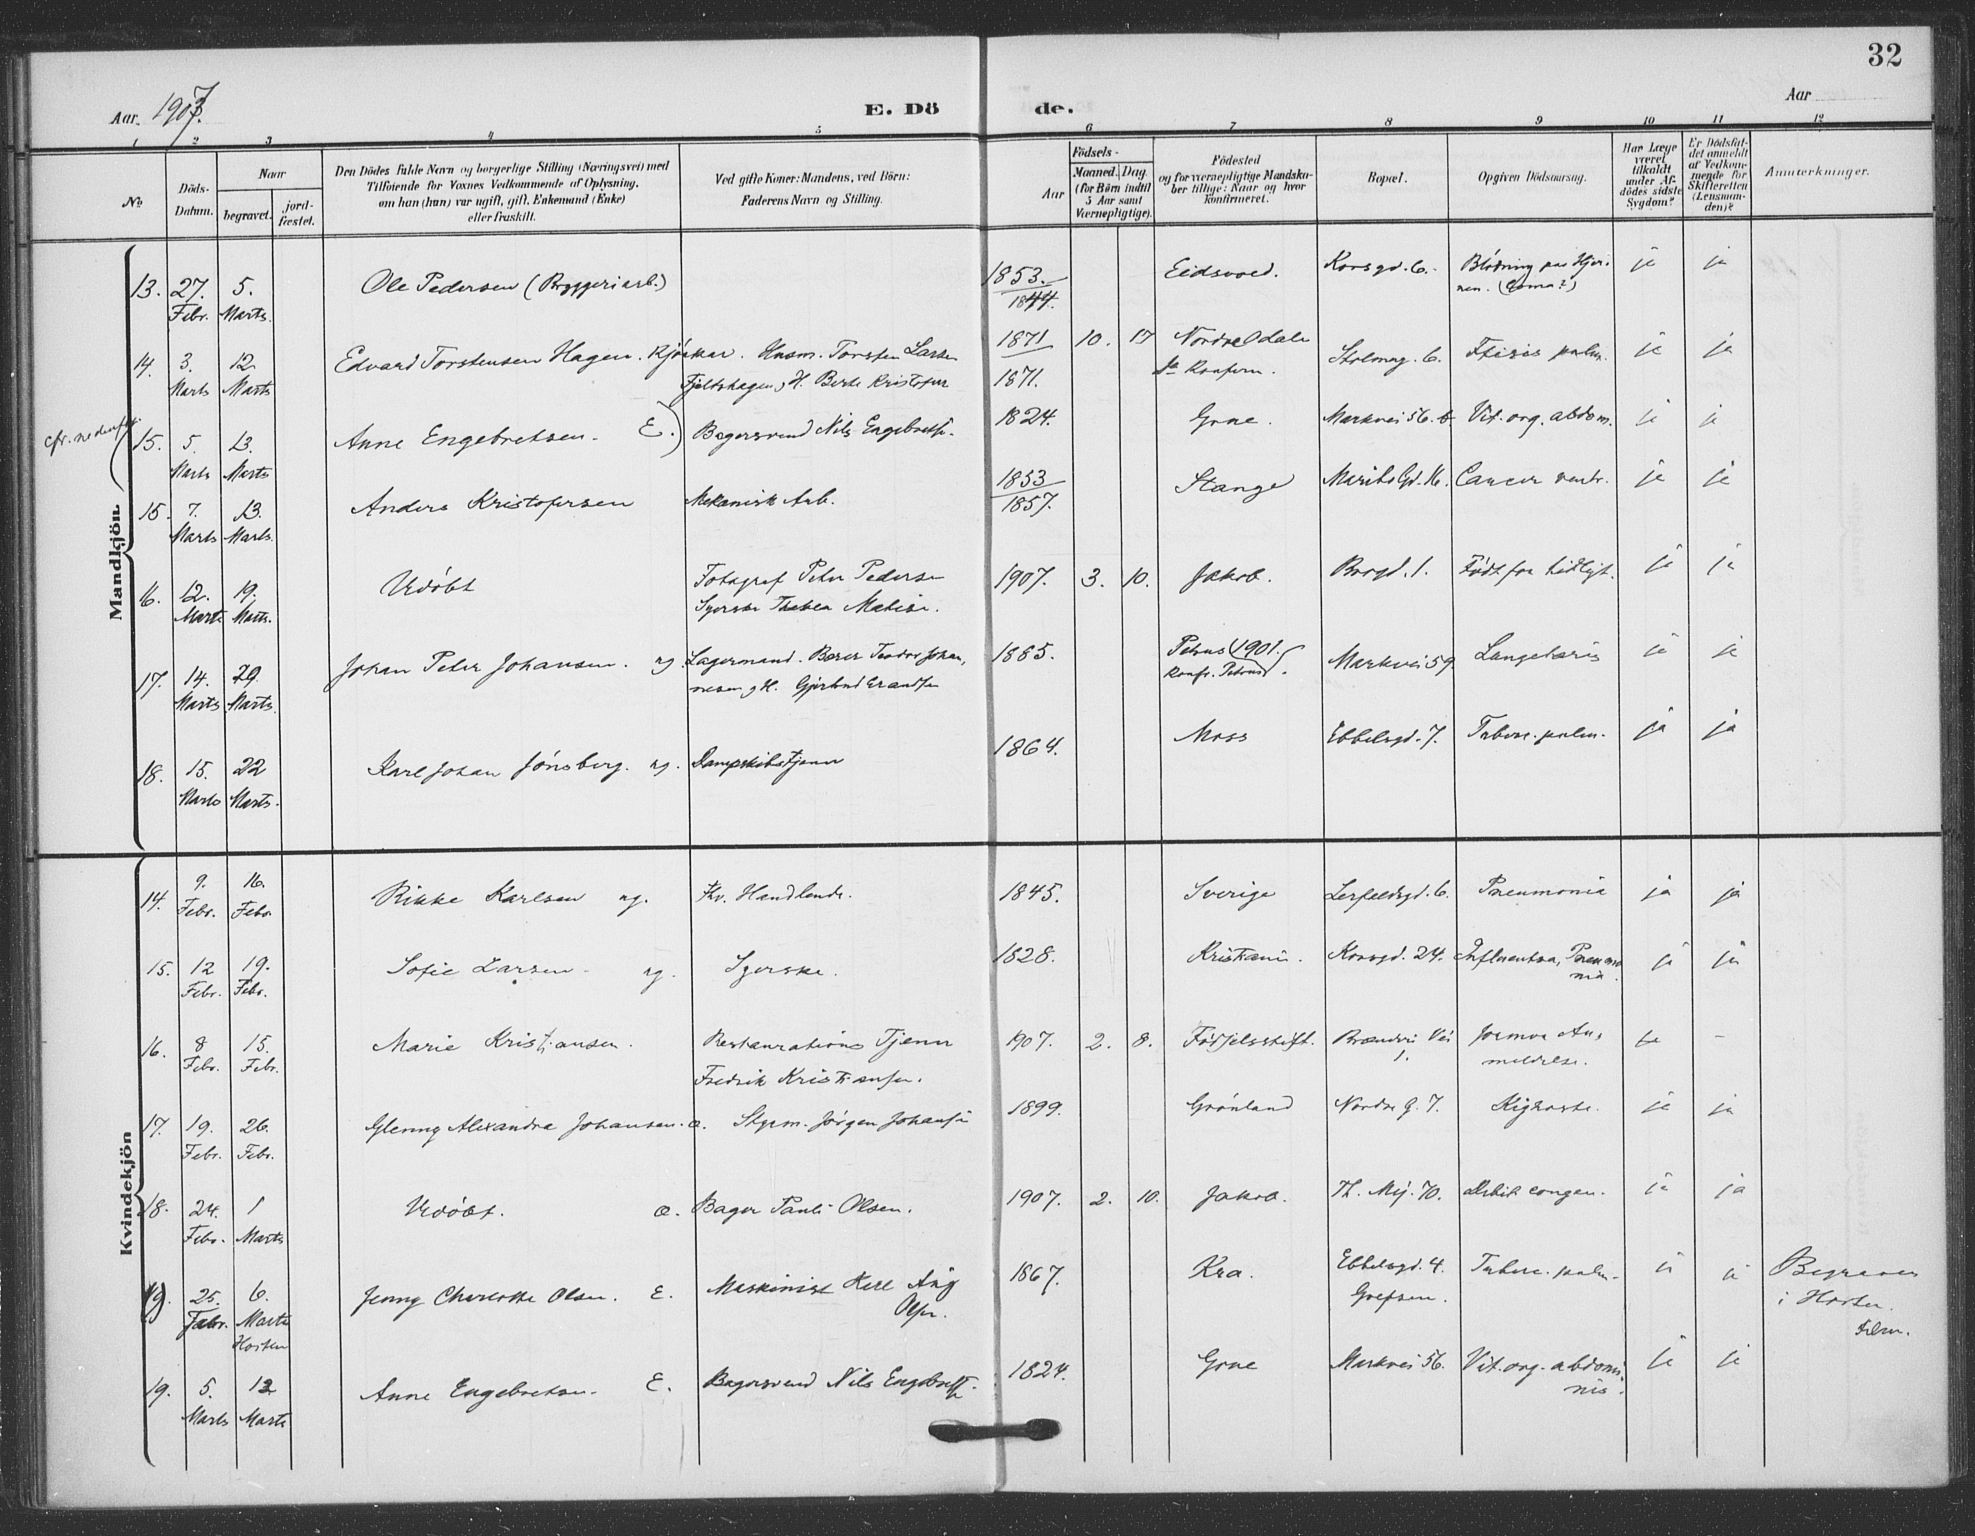 32
Aar. 1907.
E. Dö
de.
Aar
1 2 3 4 5 6 7 8 9 10 11 12
No
Döds-
Datum.
Naar
begravet.
jord-
fæstet.
Den Dödes fulde Navn og borgerlige Stilling (Næringsvei) med
Tilföiende for Voxnes Vedkommende af Oplysning,
om han (hun) var ugift, gift, Enkemand (Enke)
eller fraskilt.
Ved gifte Koner: Mandens, ved Börn:
Faderens Navn og Stilling.
Födsels-
Aar
Maaned. Dag
(for Börn indtil
5 Aar samt
Værnepligtige).
Födested
og for værnepligtige Mandska-
ber tillige: Naar og hvor
konfirmeret.
Bopæl.
Opgiven Dödsaarsag.
Har Læge
været
tilkaldt
under Af-
dödes sidste
Sygdom?
Er Dödsfal-
det anmeldt
af Vedkom-
mende for
Skifteretten
(Lensman-
den)?
Anmærkninger.
Mandkjön.
13. 27. 5. Ole Pedersen (Bryggeriarb.) 1853. Eidsvold. Korsgd. 6. Blödning paa Hjer-
Febr. Marts. 1844. nen. (Coma?)
14. 3. 12. Edvard Torstensen Hagen. Kjöskar. Husm. Torsten Larsen 1871 10. 17 Nordre Odalen Ftisis pulm. ja ja
Marts Marts Fjeldshagen, H. Berte Kristofer 1871. Konferm.
cfr. nedenfor
15. 5. 13. Anne Engebretsen. E. Bagersvend Nils Engebretsen. 1824. Grue. Markvei 56. b Vit. org. abdom. ja ja
Marts Marts
15. 7. 13. Anders Kristofersen Mekanisk Arb. 1853 Stange Maribogd. 16. Cancer ventr. ja ja
Marts Marts. 1857.
16. 12. 19. Udöbt Fotograf Peter Pedersen 1907. 3. 10. Jakob. Födt for tidligt. ja ja
Marts Marts. Syerske Thekla
17. 14. 29. Johan Peter Johansen. ug. Lagermand. 1885. Petrus (1901. Markvei 59 ja ja
Marts Marts. konfr. Petrus).
18. 15. 22 Karl Johan Jönsberg. ug. Dampskibstjener 1864. Moss Ebbelsgd. 7. Tuberc. pulm. ja ja
Marts Marts.
Kvindekjön
14. 9. 16. Rikke Karlsen ug. Fhv. Handlende. 1845. Sverige Lerfaldsgd. 6. Pneumonia ja ja
Febr. Febr
15. 12 19. Sofie Larsen. ug. Syerske. 1828. Kristiania. Korsgd. 24. Influentsa, Pneumo
Febr. Febr. nia. ja ja
16. 8 15. Marie Kristiansen. Restaurations Tjener 1907. 2. 8. Födselsstift. Vei Jormor An-
Febr. Febr. Fredrik Kristiansen. 1. meldelse. -
17. 19. 26. Glenny Alexandra Johansen. a. Styrm. Jörgen Johansen 1899. Grönland Nordre G. 7. Kighoste. ja ja
Febr. Febr.
18. 24. 1 Udöbt. a. Bager Pauli Olsen. 1907. 2. 10. Jakob. Th. Mej. 70. congen. ja ja
Febr. Marts
19. 25. 6. Jenny Charlotte Olsen. E. Maskinist Karl Aug 1867. Kra. Ebbelsgd. 4. Tuberc. pulm. ja ja Begraves
Febr. Marts Olsen. Grefsen. i Horten.
Horten
19. 5. 13 Anne Engebretsen. E. Bagersvend Nils Engebretsen. 1824. Grue Markvei 56. Vit. org. abdomi
Marts Marts nis. ja ja